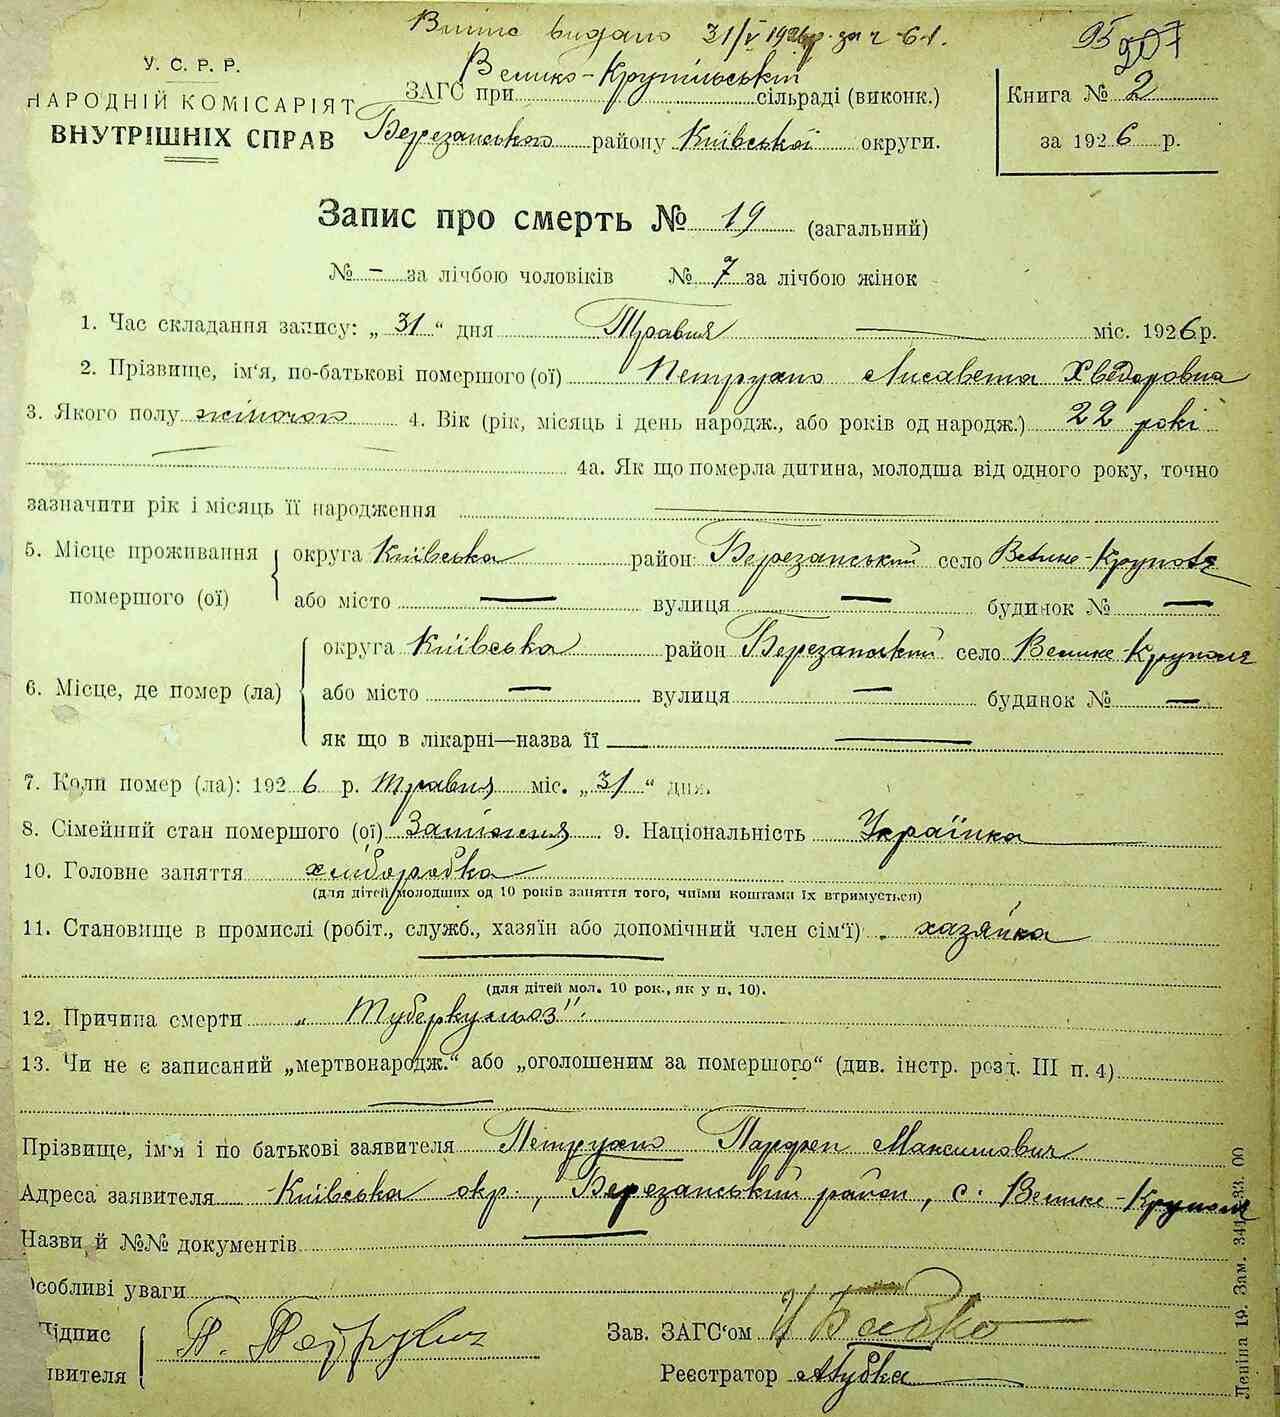 Витяг видано 31/V 1926р. за ч 61.
95 207
У. С. Р. Р.
НАРОДНІЙ КОМІСАРІЯТ
ВНУТРІШНІХ СПРАВ
ЗАГС при Велико-Крупільській сільраді (виконк.)
Березанського району Київської округи.
Книга № 2
за 1926 р.
Запис про смерть № 19 (загальний)
№ – за лічбою чоловіків № 7 за лічбою жінок
1. Час складання запису: „31“ дня Травня міс. 1926 р.
2. Прізвище, ім‘я, по-батькові помершого (ої) Лисавета Хведоровна
3. Якого полу жіночого 4. Вік (рік, місяць і день народж., або років од народж.) 22 рокі
4а. Як що померла дитина, молодша від одного року, точно
зазначити рік і місяць її народження
5. Місце проживання помершого (ої) округа Київська район Березанський село Велике-Крупол
або місто — вулиця — будинок № —
6. Місце, де помер (ла) округа Київська район Березанський село Велике-Круполя
або місто — вулиця — будинок № —
як що в лікарні—назва її —
7. Коли помер (ла): 1926 р. Травня міс. „31“ дня.
8. Сімейний стан помершого (ої) Заміжня 9. Національність Українка
10. Головне заняття хліборобка
(для дітей молодших од 10 років заняття того, чиїми коштами їх втримується)
11. Становище в промислі (робіт., служб., хазяїн або допомічний член сім‘ї) хазяйка
(для дітей мол. 10 рок., як у п. 10).
12. Причина смерти „Туберкульоз“.
13. Чи не є записаний „мертвонародж.“ або „оголошеним за помершого“ (див. інстр. розд. III п. 4)
Прізвище, ім‘я і по батькові заявителя Парфен Максимович
Адреса заявителя Київська окр., Березанський район, с. Велике-Круполя
Назви й №№ документів —
Особливі уваги
Підпис
явителя
Зав. ЗАГС‘ом И Бабко
Реєстратор
Леніна 19. Зам. 341-33. 00